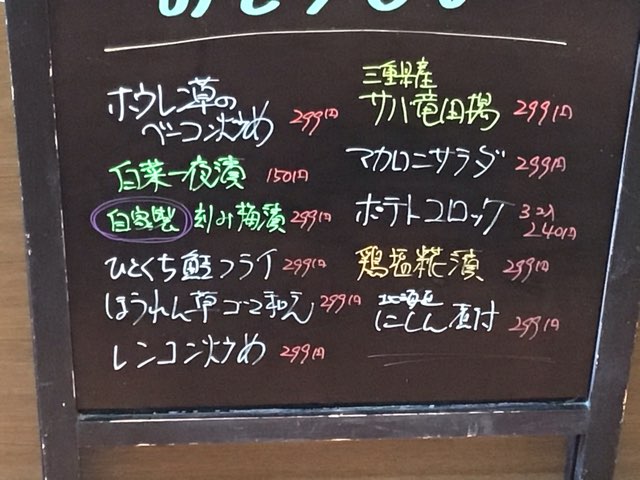 ホウレン草の
ベーコン炒め 299円
白菜一夜漬 150円
自家製 刻み梅漬 299円
ひとくち鯵フライ 299円
ほうれん草ゴマ和え 299円
レンコン炒め 299円
三重県産
サバ竜田揚 299円
マカロニサラダ 299円
ポテトコロッケ 3コ入
240円
鶏塩糀漬 299円
北海道
にしん煮付 299円